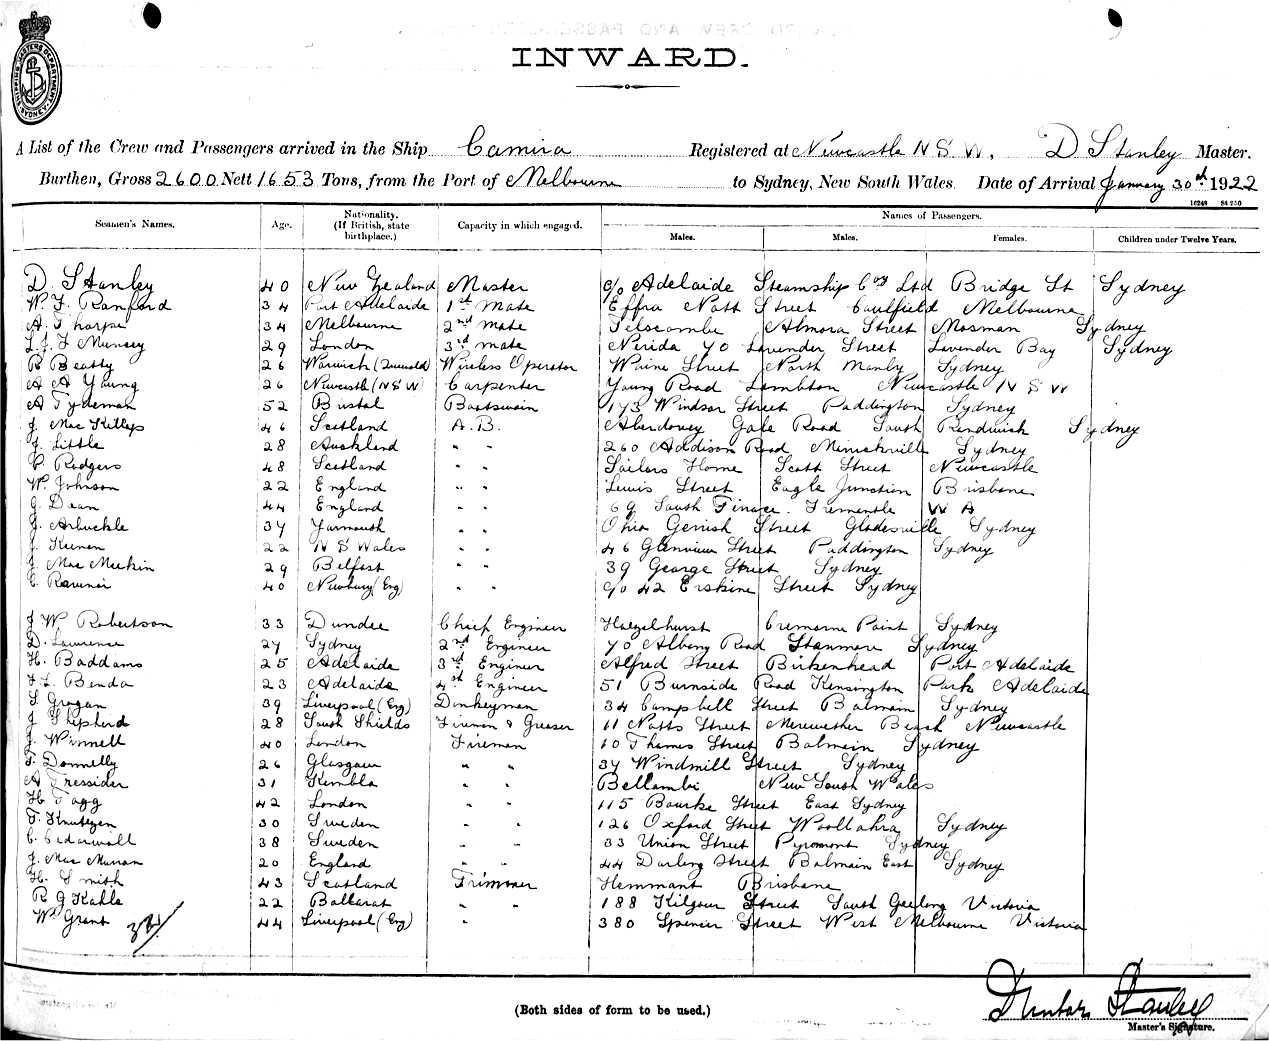 SHIPPING MASTERS DEPARTMENT SYDNEY
INWARD.
A List of the Crew and Passengers arrived in the Ship Camira Registered at Newcastle N S W, D Stanley Master.
Burthen, Gross 2600 Nett 1653 Tons, from the Port of Melbourne to Sydney, New South Wales. Date of Arrival January 30th 1922
16248 84 250
Seamen's Names. Age. Nationality. (If British, state birthplace.) Capacity in which engaged. Names of Passengers.
Males. Males. Females. Children under Twelve Years.
D Stanley 40 New Zealand Master c/o Adelaide Steamship Coy Ltd Bridge St Sydney
W. J. Ramford 34 Port Adelaide 1st Mate Effra Nott Street Caulfield Melbourne
A. Thorpe 34 Melbourne 2nd Mate Telscombe Almora Street Mosman Sydney
Munsey 29 London 3rd Mate Nerida 70 Lavender Street Lavender Bay Sydney
R Beatty 26 Warwick Wireless Operator Street North Manly Sydney
A A Young 26 Newcastle (N S W) Carpenter Young Road Lambton Newcastle N S W
A Tydeman 52 Bristol Boatswain 173 Windsor Street Paddington Sydney
J. Mac Killop 46 Scotland A.B. Aberdovey Gale Road South Randwick Sydney
J. Little 28 Auckland " " 260 Addison Road Marrickville Sydney
Rodgers 48 Scotland " " Sailors Home Scott Street Newcastle
W. Johnson 22 England " " Lewis Street Eagle Junction Brisbane
G. Dean 44 England " " 69 South Terrace. Fremantle W A
J. Arbuckle 37 Yarmouth " " Ohio Gerrish Street Gladesville Sydney
J. Keenan 22 N S Wales " " 46 Glenview Street Paddington Sydney
J Mac Meekin 29 Belfast " " 39 George Street Sydney
C. 40 Newbury (Eng) " " c/o 42 Erskine Street Sydney
J. W Robertson 33 Dundee Chief Engineer Hazelhurst Cremorne Point Sydney
D. Lawrence 27 Sydney 2nd Engineer 70 Albany Road Stanmore Sydney
H. Baddams 25 Adelaide 3rd Engineer Alfred Street Birkenhead Port Adelaide
Benda 23 Adelaide 4th Engineer 51 Burnside Road Kensington Park Adelaide
Grogan 39 Liverpool (Eng) Donkeyman 34 Campbell Street Balmain Sydney
J Shepherd 28 South Shields Fireman & Greaser 11 Natts Street Merewether Beach Newcastle
J. Winnell 40 London Fireman 10 Thames Street Balmain Sydney
T. Donnelly 26 Glasgow " " 37 Windmill Street Sydney
A Tressider 31 Kembla " " Bellambi New South Wales
H Tagg 42 London " " 115 Bourke Street East Sydney
T. Knutzen 30 Sweden " " 126 Oxford Street Woollahra Sydney
C. Cedarwall 38 Sweden " " 33 Union Street Pyrmont Sydney
J. Mac Murran 20 England " " 44 Darling Street Balmain East Sydney
H. Smith 43 Scotland Trimmer Hemmant Brisbane
R G Kahle 22 Ballarat " " 188 Kilgour Street South Geelong Victoria
Wm Grant 44 Liverpool (Eng) " 380 Spencer Street West Melbourne Victoria
32
(Both sides of form to be used.)
Dunbar Stanley
Master's Signature.